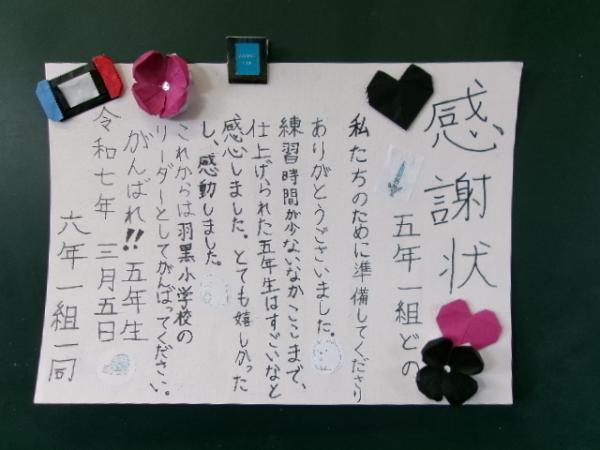 感謝状
五年一組どの
私たちのために準備してくださり
ありがとうございました。
練習時間が少ないなかここまで、
仕上げられた五年生はすごいなと
感心しました。とても嬉しかった
し、感動しました。
これからは羽黒小学校の
リーダーとしてがんばってください。
がんばれ!!五年生
令和七年 三月五日
六年一組一同